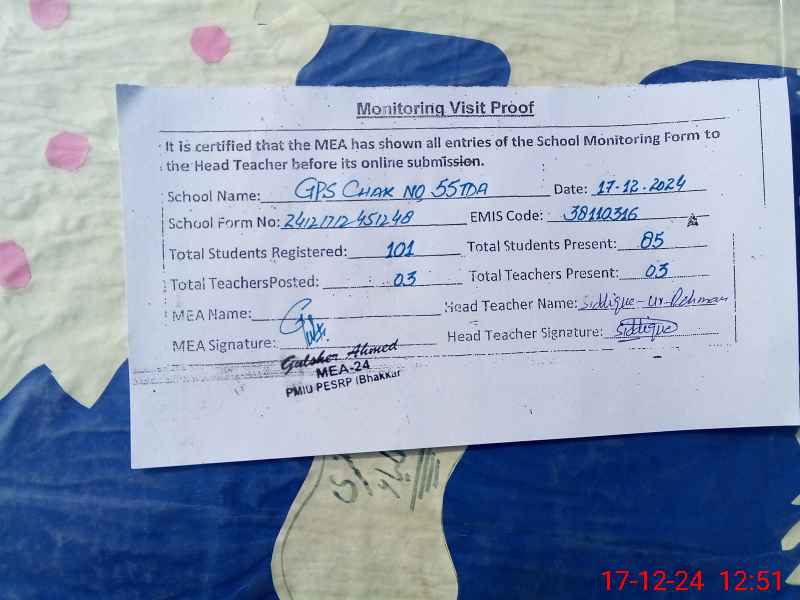 Monitoring Visit Proof
It is certified that the MEA has shown all entries of the School Monitoring Form to
the Head Teacher before its online submission.
School Name: GPS CHAK NO 55TDA Date: 17-12-2024
School Form No: 24121712451248 EMIS Code: 38110316
Total Students Registered: 101 Total Students Present: 85
Total TeachersPosted: 03 Total Teachers Present: 03
MEA Name: Head Teacher Name: Siddique-ur-Rehman
MEA Signature: Head Teacher Signature: Siddique
Gulsher Ahmed
MEA-24
PMIU PESRP (Bhakkar
17-12-24 12:51